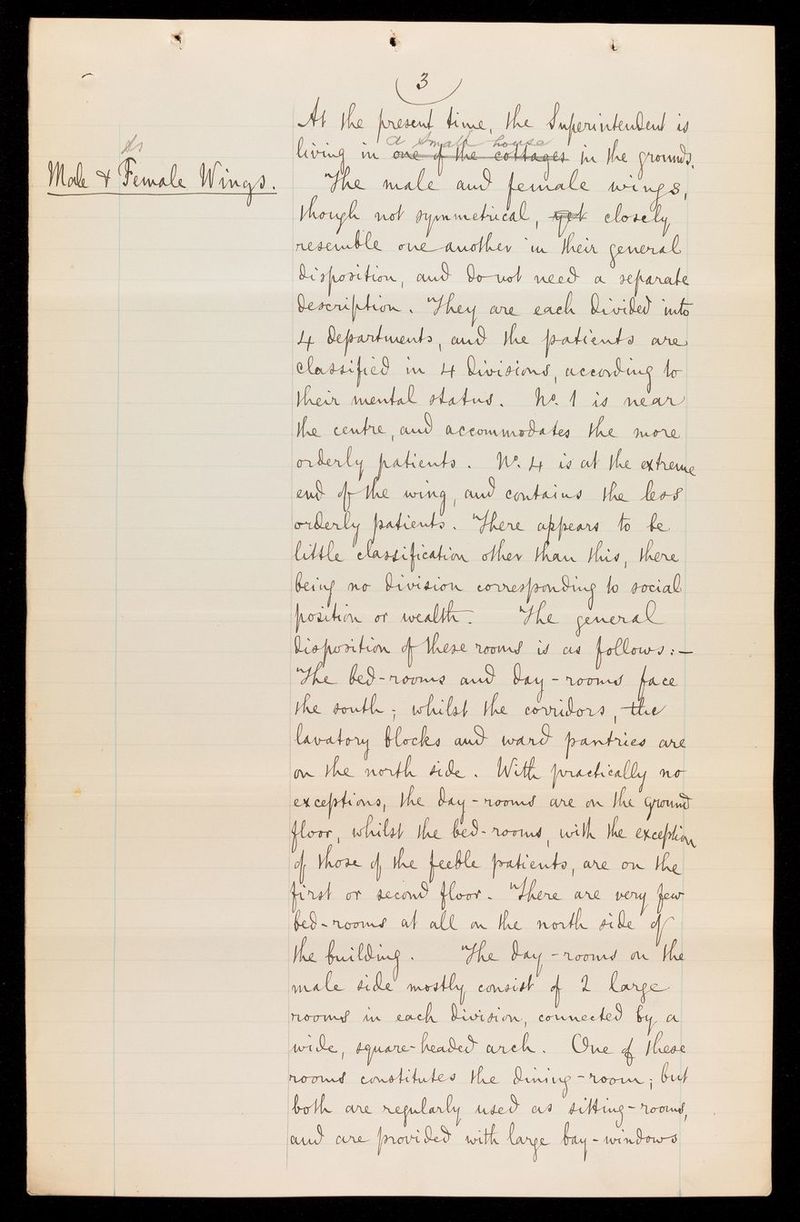 3
At the present time, the Superintendent is
a small house
living in one of the cottages in the grounds.
Male & Female Wings.
The male and female wings,
though not symmetrical, yet closely
resemble one another in their general
disposition, and do not need a separate
description. They are each divided into
4 departments, and the patients are
classified in 4 divisions, according to
their mental status. No. 1 is near
the centre, and accommodates the more
orderly patients. No. 4 is at the extreme
end of the wing, and contains the less
orderly patients. There appears to be
little classification other than this, there
being no division corresponding to social
position or wealth. The general
disposition of these rooms is as follows:—
The bed-rooms and day-rooms face
the south; whilst the corridors, the
lavatory blocks and ward pantries are
on the north side. With practically no
exceptions, the day-rooms are on the ground
floor, whilst the bed-rooms, with the exception
of those of the feeble patients, are on the
first or second floor. There are very few
bed-rooms at all on the north side of
the building. The day-rooms on the
male side mostly consist of 2 large
rooms in each division, connected by a
wide, square-headed arch. One of these
rooms constitutes the dining-room; but
both are regularly used as sitting-rooms,
and are provided with large bay-windows